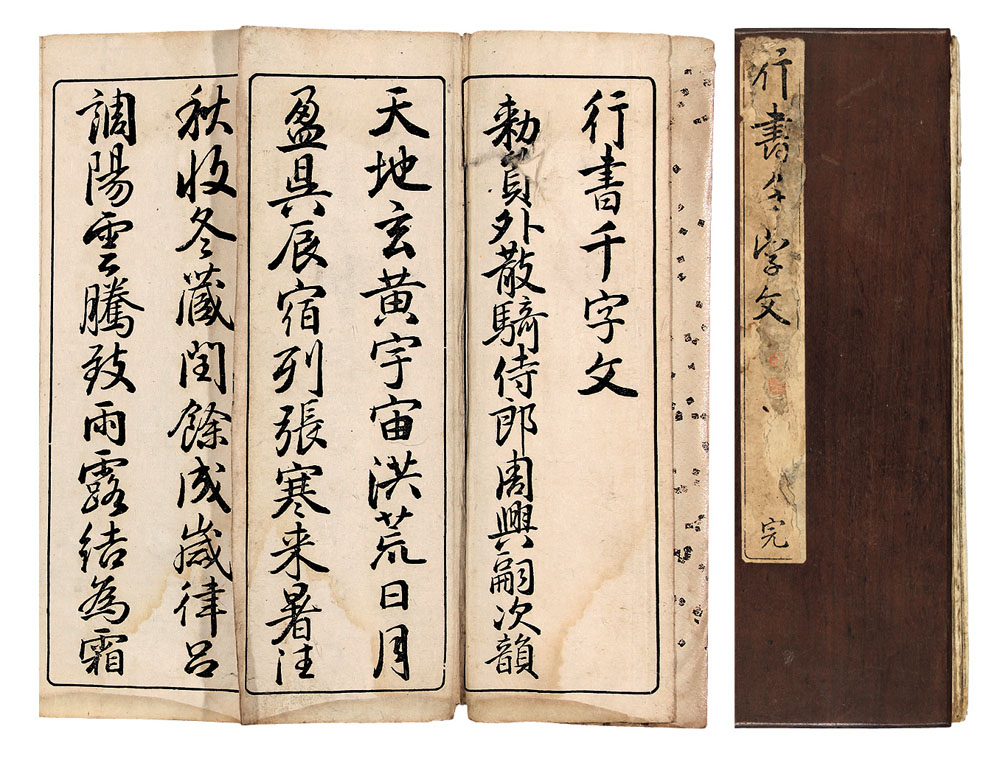 行書千字文
完
行書千字文
勅員外散騎侍郎周興嗣次韻
天地玄黄宇宙洪荒日月
盈昃辰宿列張寒来暑往
秋收冬藏閏餘成歲律呂
調陽雲騰致雨露結為霜